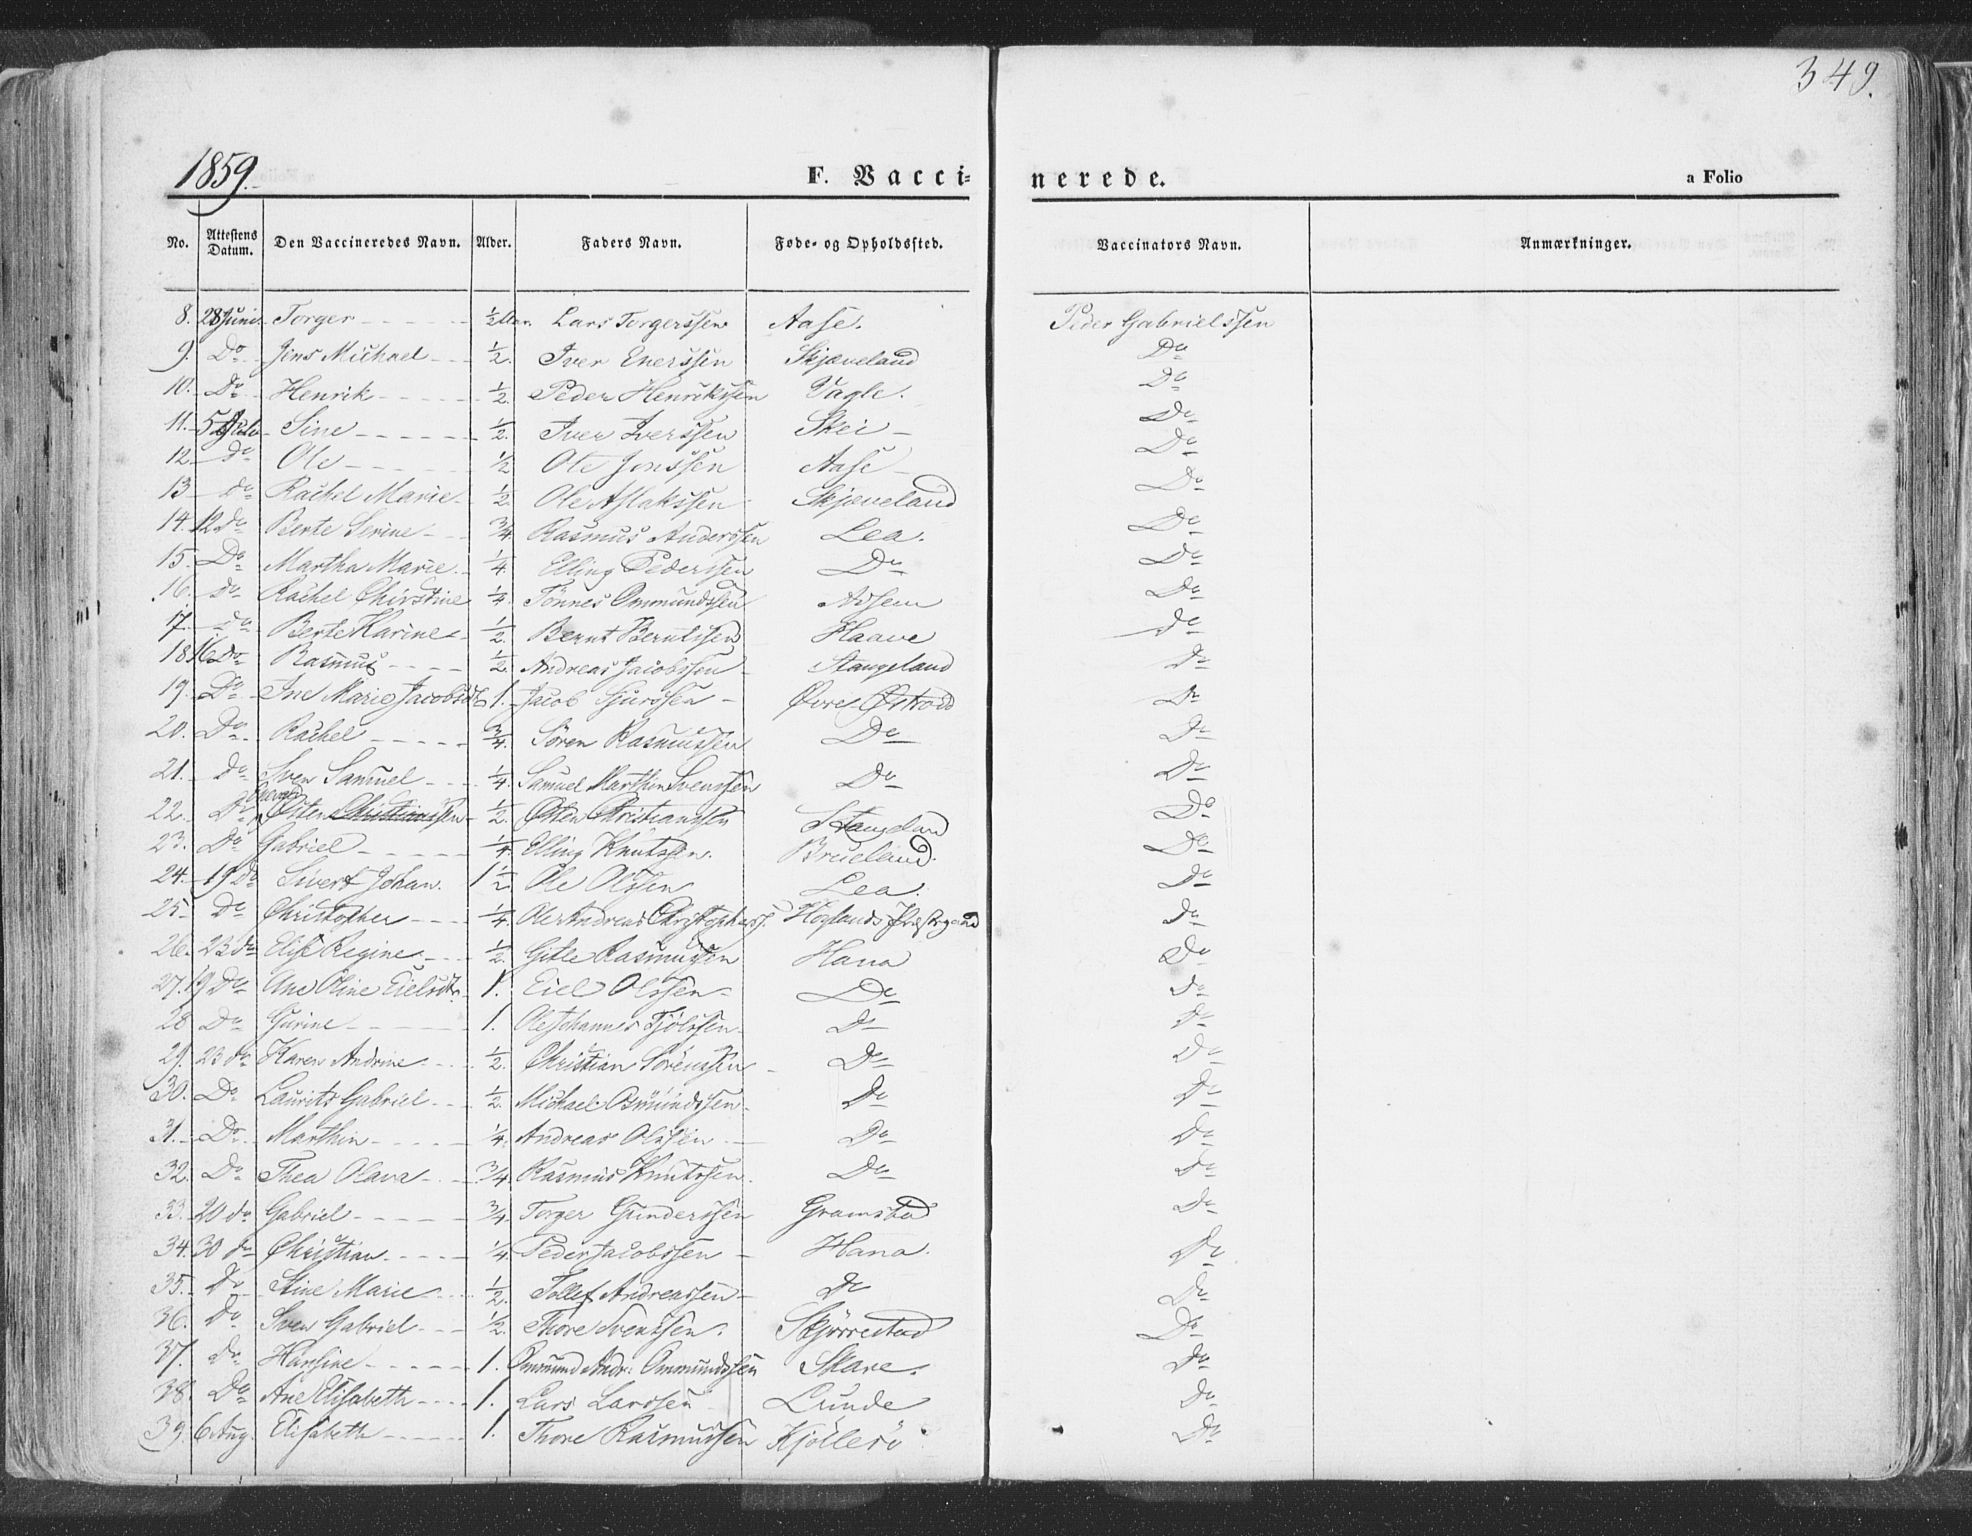 349.
1859.
F. Vacci- nerede. a Folio
No. Attestens Datum. Den Vaccineredes Navn. Alder. Faders Navn. Føde- og Opholdssted. Vaccinators Navn. Anmærkninger.
8. 28 Juni Torger ½ Aar. Lars Torgerssen Aase. Peder Gabrielssen
9. Do Jens Michael ½. Iver Enerssen Skjæveland Do
10. Do Henrik ½. Peder Henrikssen Vagle. Do
11. 5 Julo Sine ½. Iver Iverssen Skei Do
12 Do Ole ½ Ole Jonssen Aase Do
13 do Rachel Marie ½. Ole Aslakssen Skjæveland Do
14. 12 Do Berte Serine ¾ Rasmus Anderssen Lea. Do
15. Do Martha Marie ¼. Elling Pederssen Do Do
16. do Rachel Chirstine ¼. Tönnes Ommundssen Do
17. do Berte Karine ½. Bernt Berntssen Haave do
18 16 Do Rasmus ½. Andreas Jacobssen Stangeland Do
19. Do Ine Marie Jacobsdt 1. Jacob Sjurssen Øvre Østraad Do
20. Do Rachel ¾. Sören Rasmussen Do Do
21. do Sven Samuel ¼. Samuel Marthin Svenssen Do Do
22. Do Østen Christianssen ½. Østen Christianssen Stangelan Do
23. Do Gabriel ¼. Elling Knutssen. Brueland. Do
24. 19 Do Sivert Johan. 1½ Ole Olssen Lea. Do
25. Do Christopher ¼. Ole Andreas Christophers. Høylands Præstegaard Do
26. 23 do Elise Regine ½. Gitle Rasmussen Hana Do
27. 19 Do Ane Oline Eielsdtr. 1. Eiel Olssen Do Do
28 Do Gurine 1. Ole Johannes Tjölssen Do Do
29. 23 do Karen Andrine ½. Christian Sörenssen Do Do
30. Do Laurits Gabriel ½. Michael Osmundssen Do Do
31. Do Marthin ¼. Andreas Olssen Do Do
32. Do Thea Olava ¾ Rasmus Knutssen. Do Do
33. 20 do Gabriel ¾. Torger Gunderssen Gramstad Do
34. 30 do Christian ¼ Peder Jacobssen Hana. Do
35. Do Stine Marie ½. Tollef Andreassen Do Do
36. Do Sven Gabriel ½. Thore Svenssen. Skjörrestad Do
37. Do Hansine 1. Ommund Andr: Ommundssen Skare. Do
38. Do Ane Elisabeth 1. Lars Larssen Lunde Do
39. 6 Aug. Elisabeth 1. Thore Rasmussen Kjöllerö Do